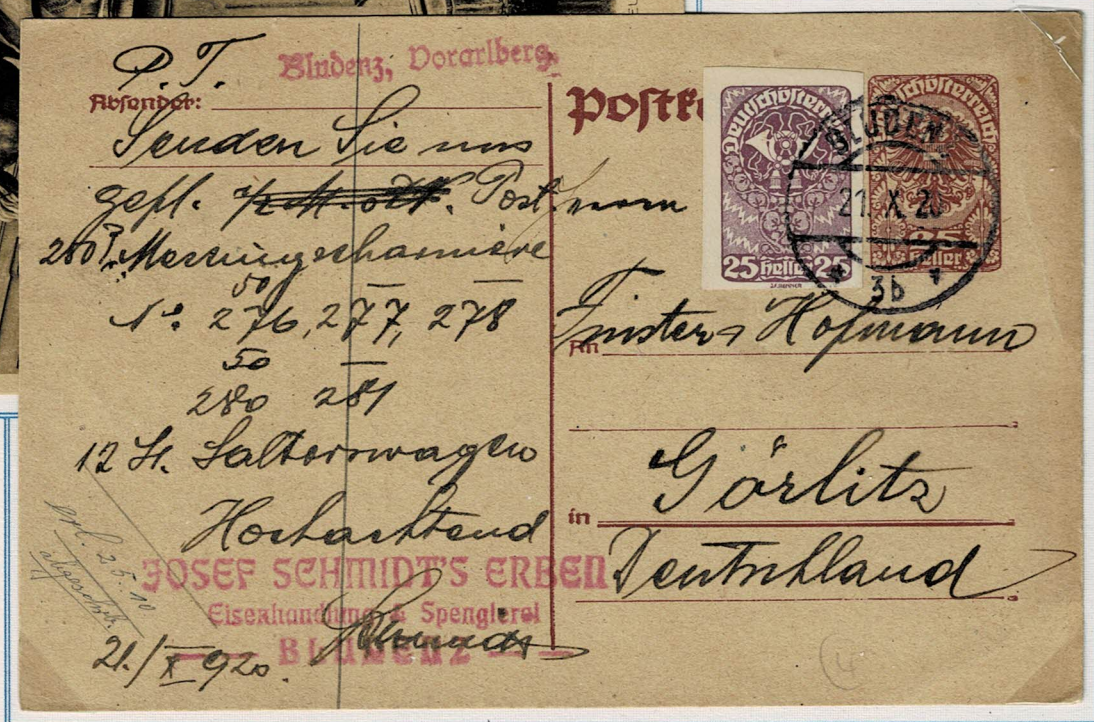 P. T.
Bludenz, Vorarlberg.
Absender:
Senden Sie uns
gefl. Post
Messingscharniere
50
No. 276, 277, 278
50
280 281
12 St.
Hochachtend
JOSEF SCHMIDT'S ERBEN
Eisenhandlung & Spenglerei
BLUDENZ
21./X 920.
erl. 25.10
Postk
Deutschösterreich
25 heller 25
Deutschösterreich
25
heller
BLUDENZ
21. X. 20
* 3b *
An
Hofmann
Görlitz
in
Deutschland
4